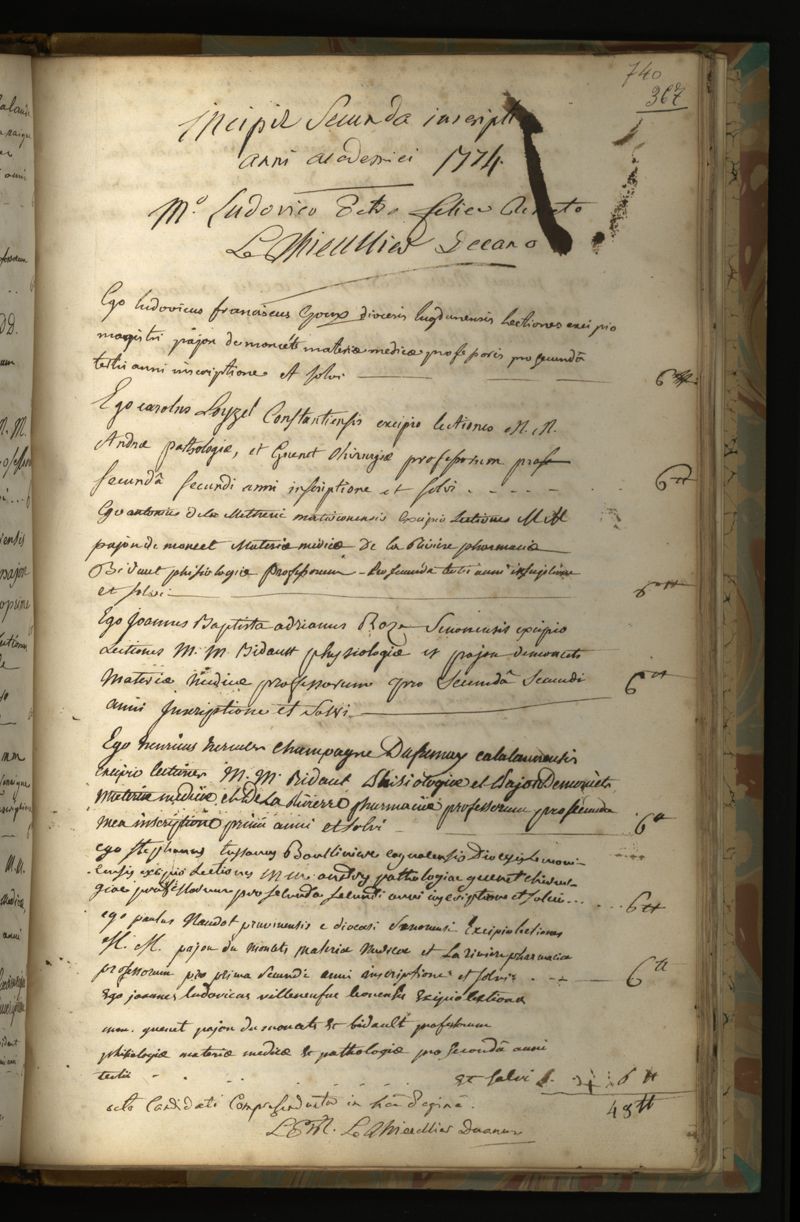 740
367
incipit Secunda inscriptio
anni academici 1774.
M.º Ludovico Petro felice Renato
Le Thieullier Decano
Ego ludovicus franciscus Goux diocesis lugdunensis lectiones excipio
magistri pajon de moncets materiæ medicæ professoris pro secundâ
tertii anni inscriptione et solvi — 6 ₶
Ego carolus Loyzel Constantiensis excipio lectiones M. M.
Andræ pathologiæ, et Guenet chirurgiæ professorum
secundâ secundi anni inscriptione et solvi . - - - - 6 ₶
Ego antonius dela Metherie matisconensis excipio Lectiones M M
pajon de moncet Materiæ medicæ De la Riviere pharmaciæ
Bidaut phisiologiæ Professorum - Pro secunda tertii anni inscriptione
et solvi — 6 ₶
Ego Joannes Baptista adrianus Roze Senonensis excipio
Lectiones M. M. Bidault physiologiæ et pajon demoncets
Materiæ Medicæ professorum pro Secundâ Secundi
anni Inscriptione et Solvi — 6 ₶
Ego henricus hercules Champagne Dufresnay catalaunensis
excipio lectiones M. M. Bidaut Phisiologiæ et Pajon Demoncets
Materiæ medicæ et De La Rivierre pharmaciæ professorum pro secunda
mea inscriptione primi anni et solvi — 6 ₶
ego stephanus Boulliniere Diocesis
excipio Lectiones M. M. andry pathologiæ guenet chirur-
giæ professorum pro secunda secundi anni inscriptione et solvi ... 6 ₶
ego paulus Naudot pruvinensis e diocesi Senonensi Excipio lectiones
M. M. pajon du moncets materiæ Medicæ et La riviere pharmaciæ
professorum pro prima secundi anni inscriptione et solvi - 6 ₶
Ego joannes ludovicus villeneufve Excipio lectiones
mm. guenet pajon du moncets & bidault professorum
phisiologiæ materiæ medicæ & pathologiæ pro secondâ anni
tertii . . . . . et solvi 6 ₶
octo Candidati Comprehenduntur in hâc paginâ. 48 ₶
L. P. F. R. Le Thieullier Decanus